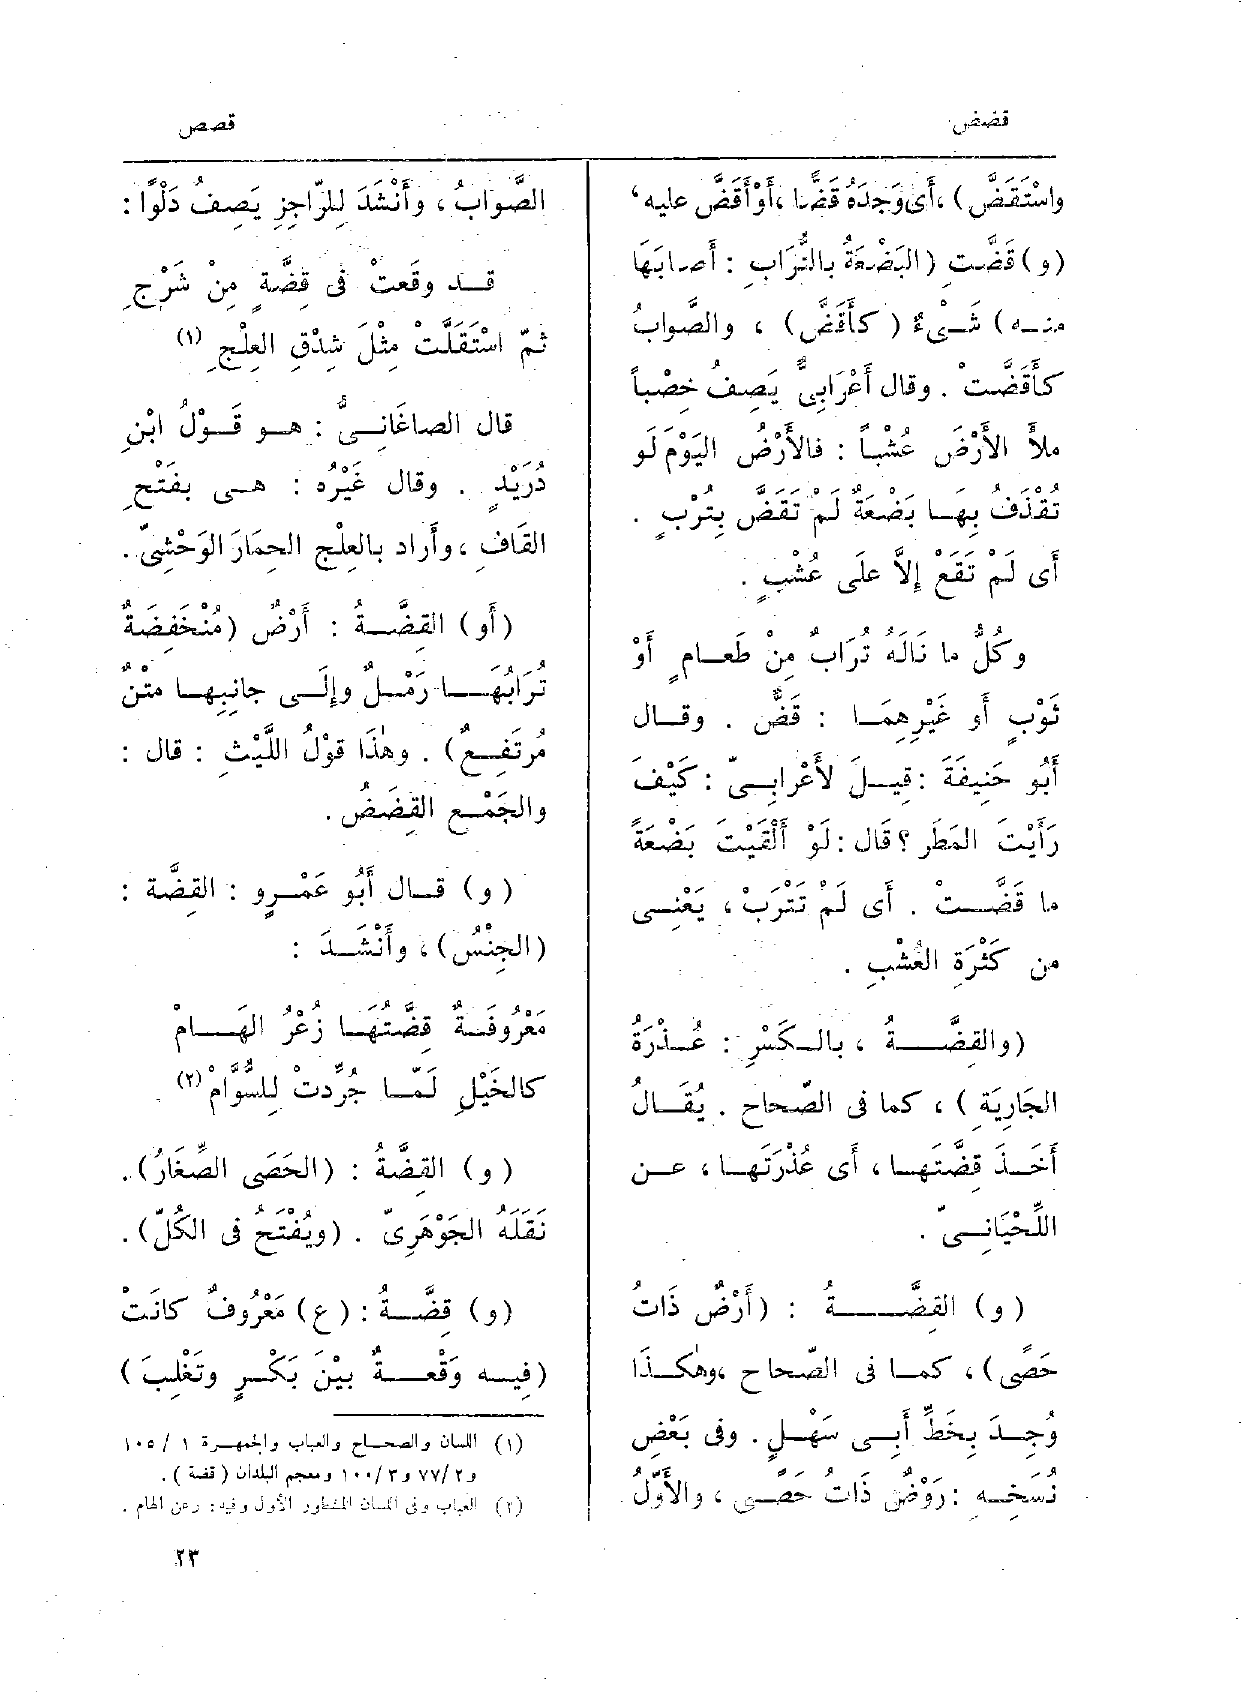 قضض
قصص
واسْتَقَضَّ)، أَى وَجَدَهُ قَضًّا، أَوْ أَقَضَّ عليه،
(و) قَضَّت (البَضْعَةُ بالتُّرَابِ : أَصابَهَا
منــه) شَــىْءٌ (كأَقَضَّ) ، والصَّوابُ
كأَقَضَّتْ . وقال أَعْرَابِىٌّ يَصِفُ خِصْباً
ملأَ الأَرْضَ عُشْباً : فالأَرْضُ اليَوْمَ لَو
تُقْذَفُ بِهَــا بَضْعَةٌ لَمْ تَقَضَّ بِتُرْبٍ .
أَى لَمْ تَقَع إِلاَّ على عُشْبٍ .
وكُلُّ ما نَالَهُ تُرَابٌ مِنْ طَعَــامٍ أَوْ
ثَوْبٍ أَو غَيْرِهِمَــا : قَضٌّ . وقــال
أَبُو حَنِيفَةَ : قِيــلَ لأَعْرابِــىّ : كَيْفَ
رَأَيْتَ المَطَر ؟ قال : لَوْ أَلْقَيْتَ بَضْعَةً
ما قَضَّــتْ . أَى لَمْ تَتْرَبْ ، يَعْنِــى
من كَثْرَةِ العُشْبِ .
(والقِضَّــةُ ، بالــكَسْرِ : عُــذْرَةُ
الجَارِيَةِ ) ، كما فى الصّحاح . يُقَــالُ
أَخَــذَ قِضَّتَهــا ، أَى عُذْرَتَهــا ، عــن
اللِّحْيَانِــىّ .
(و) القِضَّــةُ : (أَرْضٌ ذَاتُ
حَصًى) ، كمــا فى الصّحاح ، وهٰكــذا
وُجِــدَ بِخَطِّ أَبِــى سَهْــلٍ . وفى بَعْضِ
نُسَخِــهِ : رَوْضٌ ذاتُ حَصًــى ، والأَوَّلُ
الصَّوابُ ، وأَنْشَدَ لِلرّاجِزِ يَصِفُ دَلْوًا :
قَــد وقَعَتْ فى قِضَّةٍ مِنْ شَرْجِ
ثمّ اسْتَقَلَّتْ مِثْلَ شِدْقِ العِلْجِ (١)
قال الصاغَانِــىُّ : هــو قَــوْلُ ابْنِ
دُرَيْدٍ . وقال غَيْرُه : هــى بفَتْحِ
القَافِ ، وأَراد بالعِلْج الحِمَارَ الوَحْشِىَّ .
(أَو) القِضَّــةُ : أَرْضٌ (مُنْخَفِضَةٌ
تُرَابُهَــا رَمْــلٌ وإِلَــى جانِبِهــا مَتْنٌ
مُرتَفِــعٌ) . وهٰذَا قَوْلُ اللَّيْثِ : قال :
والجَمْــع القِضَضُ .
(و) قــال أَبُو عَمْــرٍو : القِضَّة :
(الجِنْسُ) ، وأَنْشَــدَ :
مَعْرُوفَــةٌ قِضَّتُهَــا زُعْرُ الهَــامْ
كالخَيْلِ لَمّــا جُرِّدتْ لِلسُّوَّامْ (٢) .
(و) القِضَّةُ : (الحَصَى الصِّغَارُ) .
نَقَلَهُ الجَوْهَرِىّ . (ويُفْتَحُ فى الكُلّ) .
(و) قِضَّــةُ : (ع) مَعْرُوفٌ كانَتْ
(فِيــه وَقْعــةٌ بيْنَ بَكْــرٍ وتَغْلِبَ)
(١) اللسان والصحــاح والعباب والجمهــرة ١ / ١٠٥
و٢/ ٧٧ و٣/ ١٠٠ ومعجم البلدان ( قضة ) .
(٢) العباب وفى اللسان المشطور الأول وفيه : رعن الهام .
٢٣